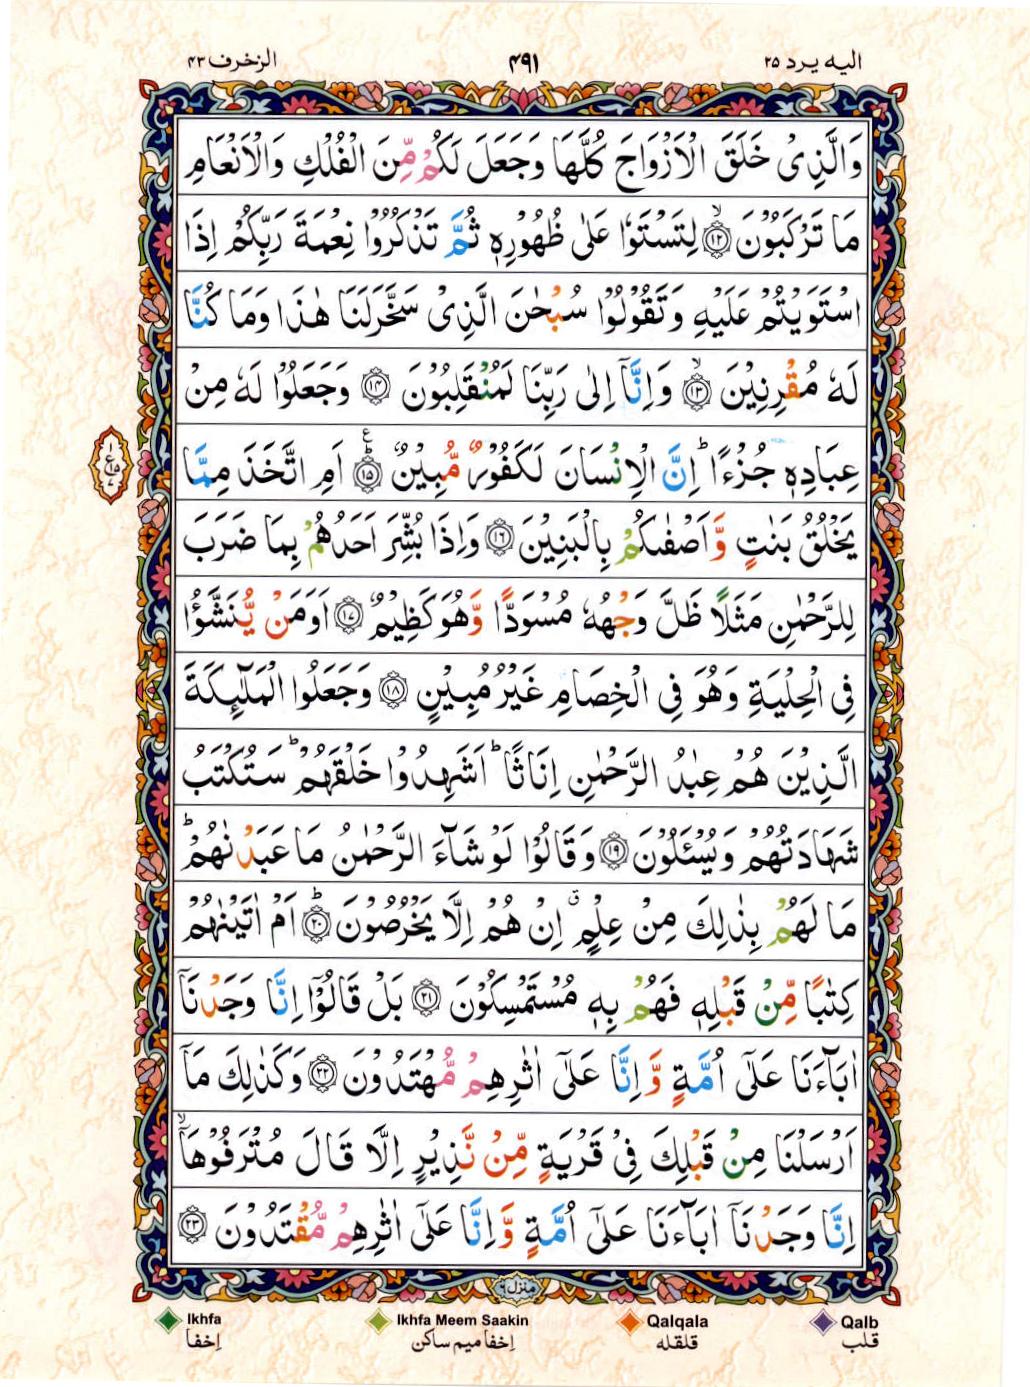 الزخرف ٤٣
٤٩١
اليه يرد ٢٥
وَالَّذِىْ خَلَقَ الْاَزْوَاجَ كُلَّهَا وَجَعَلَ لَكُمْ مِّنَ الْفُلْكِ وَالْاَنْعَامِ
مَا تَرْكَبُوْنَ ۙ‏﴿۱۲﴾ لِتَسْتَوٗا عَلٰى ظُهُوْرِهٖ ثُمَّ تَذْكُرُوْا نِعْمَةَ رَبِّكُمْ اِذَا
اسْتَوَيْتُمْ عَلَيْهِ وَتَقُوْلُوْا سُبْحٰنَ الَّذِىْ سَخَّرَ لَنَا هٰذَا وَمَا كُنَّا
لَهٗ مُقْرِنِيْنَ ۙ‏﴿۱۳﴾ وَاِنَّاۤ اِلٰى رَبِّنَا لَمُنْقَلِبُوْنَ ‏﴿۱۴﴾ وَجَعَلُوْا لَهٗ مِنْ
عِبَادِهٖ جُزْءًا ؕ اِنَّ الْاِنْسَانَ لَكَفُوْرٌ مُّبِيْنٌ ؕ ‏﴿۱۵﴾ اَمِ اتَّخَذَ مِمَّا
يَخْلُقُ بَنٰتٍ وَّاَصْفٰٮكُمْ بِالْبَنِيْنَ ‏﴿۱۶﴾ وَاِذَا بُشِّرَ اَحَدُهُمْ بِمَا ضَرَبَ
لِلرَّحْمٰنِ مَثَلًا ظَلَّ وَجْهُهٗ مُسْوَدًّا وَّهُوَ كَظِيْمٌ ‏﴿۱۷﴾ اَوَمَنْ يُّنَشَّؤُا
فِى الْحِلْيَةِ وَهُوَ فِى الْخِصَامِ غَيْرُ مُبِيْنٍ ‏﴿۱۸﴾ وَجَعَلُوا الْمَلٰٓٮِٕكَةَ
الَّذِيْنَ هُمْ عِبٰدُ الرَّحْمٰنِ اِنَاثًا ؕ اَشَهِدُوْا خَلْقَهُمْ ؕ سَتُكْتَبُ
شَهَادَتُهُمْ وَيُسْـَٔلُوْنَ ‏﴿۱۹﴾ وَقَالُوْا لَوْ شَآءَ الرَّحْمٰنُ مَا عَبَدْنٰهُمْ ؕ
مَا لَهُمْ بِذٰلِكَ مِنْ عِلْمٍ ۗ اِنْ هُمْ اِلَّا يَخْرُصُوْنَ ؕ‏﴿۲۰﴾ اَمْ اٰتَيْنٰهُمْ
كِتٰبًا مِّنْ قَبْلِهٖ فَهُمْ بِهٖ مُسْتَمْسِكُوْنَ ‏﴿۲۱﴾ بَلْ قَالُوْۤا اِنَّا وَجَدْنَاۤ
اٰبَآءَنَا عَلٰٓى اُمَّةٍ وَّاِنَّا عَلٰٓى اٰثٰرِهِمْ مُّهْتَدُوْنَ ‏﴿۲۲﴾ وَكَذٰلِكَ مَاۤ
اَرْسَلْنَا مِنْ قَبْلِكَ فِىْ قَرْيَةٍ مِّنْ نَّذِيْرٍ اِلَّا قَالَ مُتْرَفُوْهَاۤ ۙ
اِنَّا وَجَدْنَاۤ اٰبَآءَنَا عَلٰٓى اُمَّةٍ وَّاِنَّا عَلٰٓى اٰثٰرِهِمْ مُّقْتَدُوْنَ ‏﴿۲۳﴾
منزل ٦
Ikhfa
إخفا
Ikhfa Meem Saakin
إخفا ميم ساكن
Qalqala
قلقله
Qalb
قلب